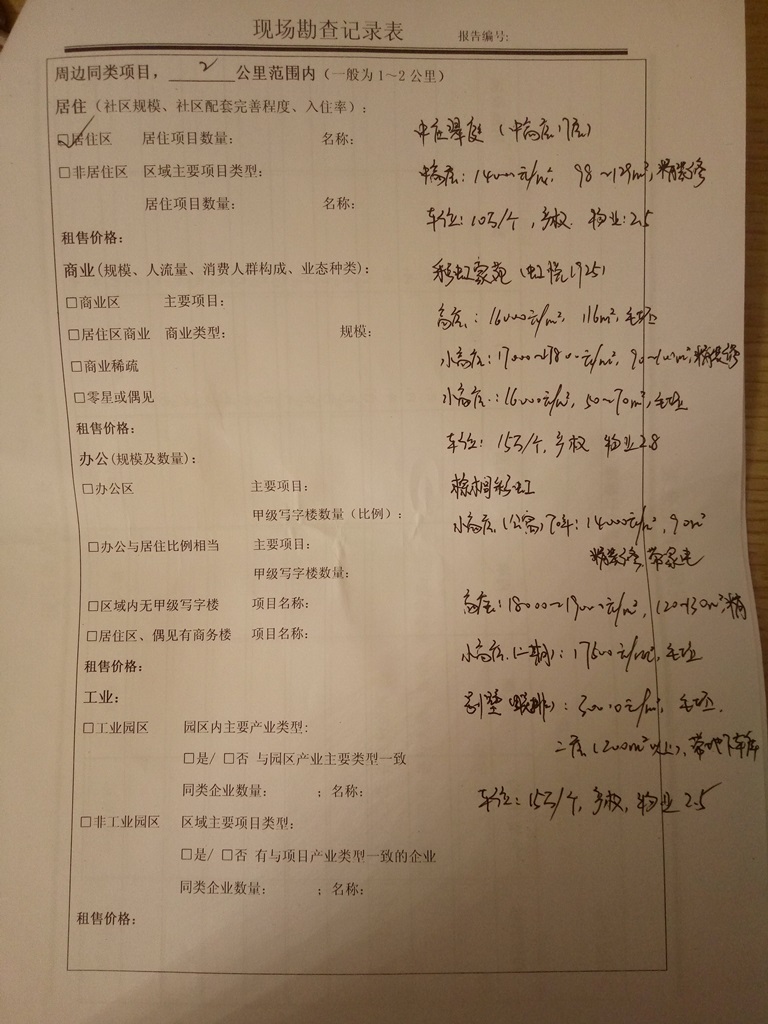 现场勘查记录表 报告编号:
周边同类项目，2公里范围内（一般为1～2公里）
居住（社区规模、社区配套完善程度、入住率）:
☑居住区 居住项目数量: 名称: (中高层17层)
□非居住区 区域主要项目类型: 中高层: 14000元/m², 98~129m², 精装修
居住项目数量: 名称: 车位: 10万/个, 产权. 物业: 2.5
租售价格:
商业(规模、人流量、消费人群构成、业态种类): 彩虹家苑 (虹悦1925)
□商业区 主要项目: 高层: 16000元/m², 116m², 毛坯
□居住区商业 商业类型: 规模: 小高层: 17000~17800元/m², 90~100m², 精装修
□商业稀疏
□零星或偶见 小高层: 16000元/m², 50~70m², 毛坯
租售价格: 车位: 15万/个, 产权 物业2.8
办公(规模及数量):
□办公区 主要项目: 棕榈彩虹
甲级写字楼数量（比例）: 小高层(公寓)70年: 14000元/m², 90m²
□办公与居住比例相当 主要项目: 精装修 带家电
甲级写字楼数量:
□区域内无甲级写字楼 项目名称: 高层: 18000~19000元/m², 120~130m², 精
□居住区、偶见有商务楼 项目名称: 小高层(二期): 17500元/m², 毛坯
租售价格:
工业: 别墅(联排): 30000元/m², 毛坯.
□工业园区 园区内主要产业类型: 二层(200m²以上), 带地下车库
□是/ □否 与园区产业主要类型一致
同类企业数量: ；名称: 车位: 15万/个, 产权, 物业2.5
□非工业园区 区域主要项目类型:
□是/ □否 有与项目产业类型一致的企业
同类企业数量: ；名称:
租售价格: